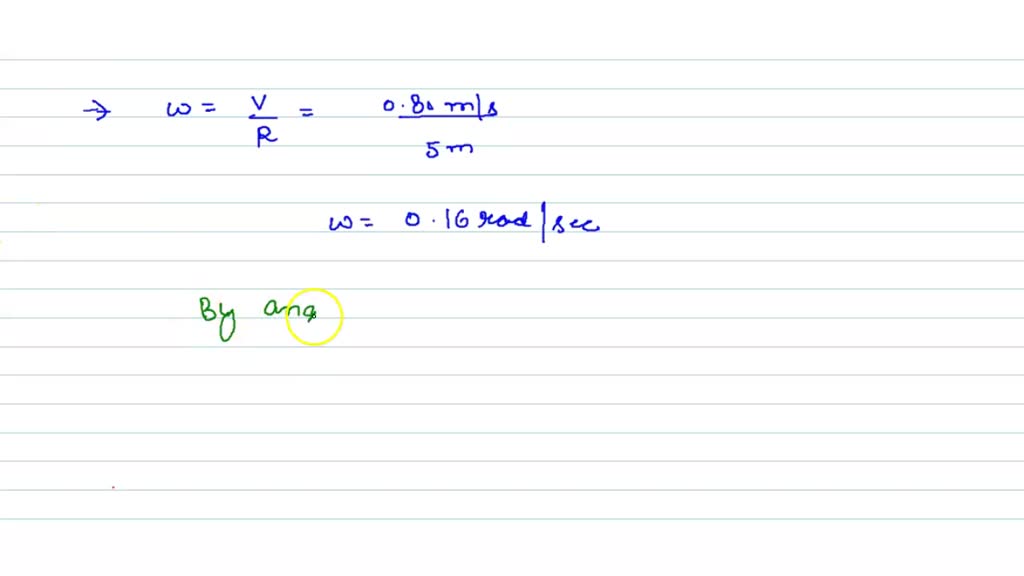 → ω = V/R = 0.80 m/s / 5m
ω = 0.16 rad/sec
By ang